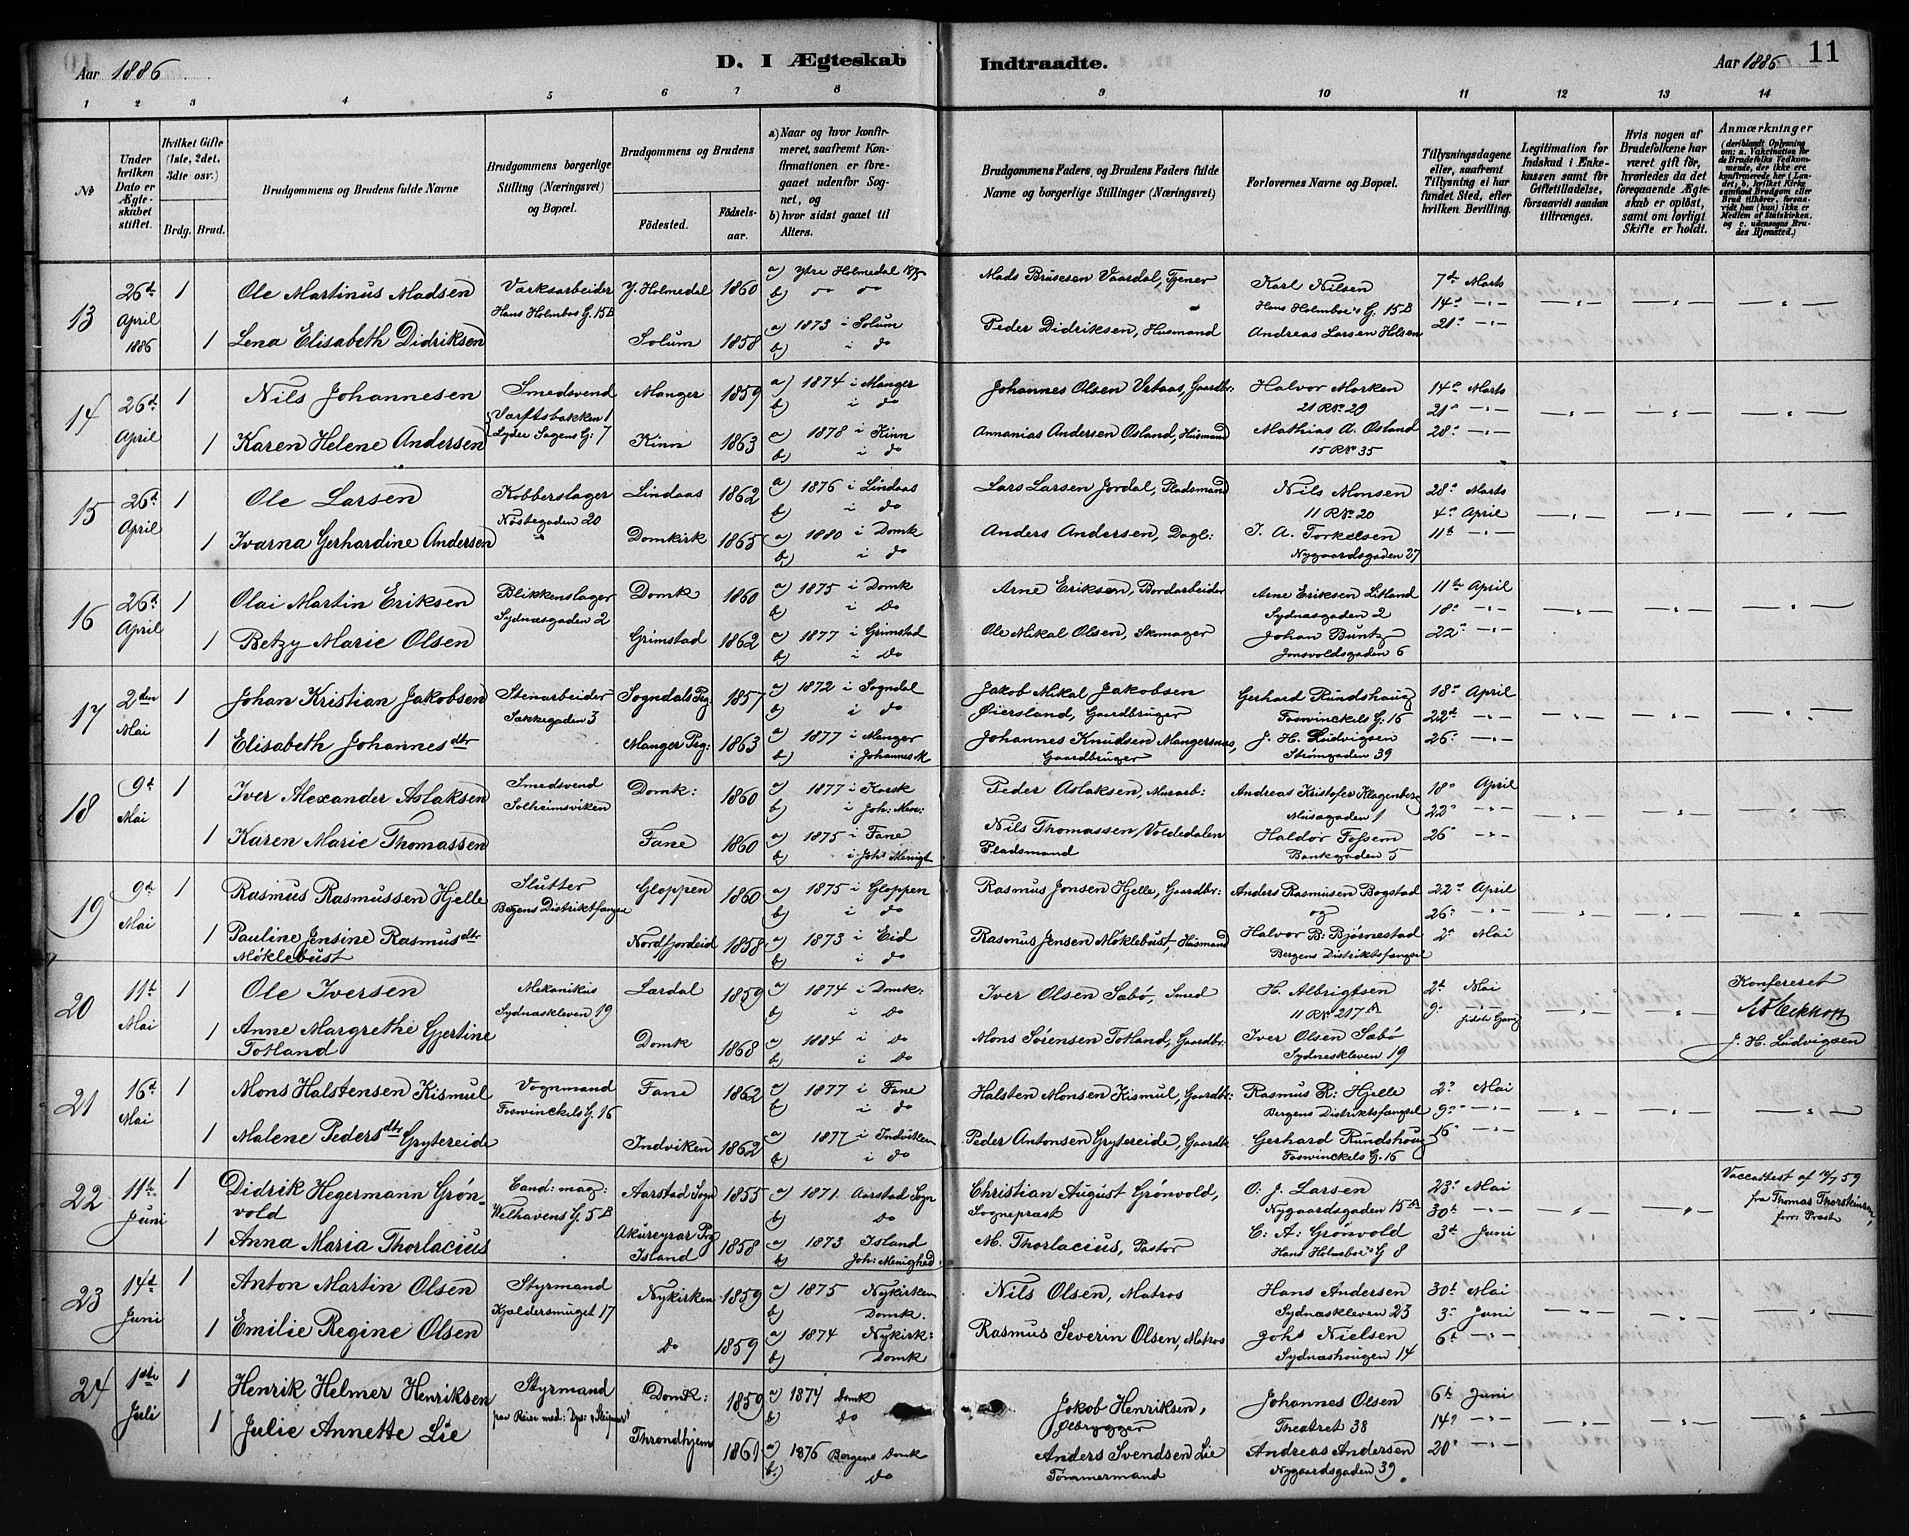 Aar 1886
D. I Ægteskab Indtraadte.
Aar 1886 11
1 2 3 4 5 6 7 8 9 10 11 12 13 14
No
Under hvilken Dato er Ægteskabet stiftet.
Hvilket Gifte (1ste, 2det, 3die osv.)
Brdg. Brud.
Brudgommens og Brudens fulde Navne
Brudgommens borgerlige Stilling (Næringsvei) og Bopæl.
Brudgommens og Brudens
Fødested.
Fødselsaar.
a) Naar og hvor konfirmeret, saafremt Konfirmationen er foregaaet udenfor Sognet, og
b) hvor sidst gaaet til Alters.
Brudgommens Faders, og Brudens Faders fulde Navne og borgerlige Stillinger (Næringsvei)
Forlovernes Navne og Bopæl.
Tillysningsdagene eller, saafremt Tillysning ei har fundet Sted, efter hvilken Bevilling.
Legitimation for Indskud i Enkekassen samt for Giftetilladelse, forsaavidt saadan tiltrænges.
Hvis nogen af Brudefolkene har været gift før, hvorledes da det foregaaende Ægteskab er opløst, samt om lovligt Skifte er holdt.
Anmærkninger (deriblandt Oplysning om: a. Vakcination for de Brudefolks Vedkommende, der ikke ere konfirmerede her i Landet; b. hvilket Kirkesamfund Brudgom eller Brud tilhører, forsaavidt han (hun) ikke er Medlem af Statskirken, og c. udensogns Brudes Hjemsted.)
13 26de April 1886 1 Ole Martinus Madsen Værksarbeider Hans Holmbos G. 15B Y. Holmedal 1860 a) Ytre Holmedal b) do do Mads Brüsesen Vaardal, Tjener Karl Nilsen Hans Holmboe's G. 15B 7de Marts 14de
1 Lena Elisabeth Didriksen Solum 1858 a) 1873 i Solum b) i do Peder Didriksen, Husmand Andreas Larsen Holsen 21de
14 26de April 1 Nils Johannesen Smedsvend Værftsbakken 1 Manger 1859 a) 1874 i Manger b) i do Johannes Olsen Vetaas, Gaardbr: Halvor Marken 21 R No 29 14de Marts 21de
1 Karen Helene Andersen Lyder Sagens G: 7 Kinn 1863 a) 1878 i Kinn b) i do Annanias Andersen Osland, Husmand Mathias A. Osland 15 R No 35 28de
15 26de April 1 Ole Larsen Kobberslager Nøstegaden 20 Lindaas 1862 a) 1876 i Lindaas b) i do Lars Larsen Jordal, Pladsmand Nils Monsen 11 R No 20 28de Marts 4de April
1 Ivarna Gerhardine Andersen Domkirk 1865 a) 1880 i Domk b) i do Anders Andersen, Dagl: J. A. Torkelsen Nygaardsgaden 27 11te
16 26de April 1 Olai Martin Eriksen Blikkenslager Sydnæsgaden 2 Domk 1860 a) 1875 i Domk b) i Do Arne Eriksen, Bordarbeider Arne Eriksen Litland Sydnæsgaden 2 11te April 18de
1 Betzy Marie Olsen Grimstad 1862 a) 1877 i Grimstad b) i Do Ole Mikal Olsen, Skomager Johan Buntz Jonsvoldsgaden 6 22de
17 2den Mai 1 Johan Kristian Jakobsen Stenarbeider Sækkegaden 3 Sogndals Prg: 1857 a) 1872 i Sogndal b) i do Jakob Mikal Jakobsen Øiersland, Gaardbruger Gerhard Rundshaug Foswinckels G. 16 18de April 22de
1 Elisabeth Johannesdtr Manger Prg: 1863 a) 1877 i Manger b) i Johannes M Johannes Knudsen Mangersnæs, Gaardbruger J. H. Ludvigsen Strømgaden 39 26de
18 9de Mai 1 Iver Alexander Aslaksen Smedsvend Solheimsviken Domk: 1860 a) 1877 i Korsk b) i Joh: Men: Peder Aslaksen, Murarb: Andreas Kristofer Klagenberg Musægaden 1 18de April 22de
1 Karen Marie Thomassen Fane 1860 a) 1875 i Fane b) i Johs Menigt Nils Thomassen Voldedalen Pladsmand Haldor Fossem Bankgaden 5 26de
19 9de Mai 1 Rasmus Rasmussen Hjelle Slutter Bergens Distriktsfængsel Gloppen 1860 a) 1875 i Gloppen b) i do Rasmus Jonsen Hjelle, Gaardbr: Anders Rasmusen Bogstad og 22de April 26de
1 Pauline Jensine Rasmusdtr Møklebust Nordfjordeid 1858 a) 1873 i Eid b) i do Rasmus Jensen Møklebust, Husmand Halvor B: Bjørnestad Bergens Distriktsfængsel 2de Mai
20 11te Mai 1 Ole Iversen Mekanikus Sydnæskleven 19 Lærdal 1859 a) 1874 i Domk: b) i do Iver Olsen Sabø, Smed H. Albrigtsen 11 R No 217A 2de Mai 9de sidste Gang Konfereret
1 Anne Margrethe Gjertine Totland Domk 1868 a) 1884 i Do b) i Do Mons Sørensen Totland, Gaardbr: Iver Olsen Sabø Sydnæskleven 19 J. H. Ludvigsen
21 16de Mai 1 Mons Halstensen Kismul Vognmand Foswinckels G. 16 Fane 1862 a) 1877 i Fane b) i do Halsten Monsen Kismul, Gaardbr: Rasmus R: Hjelle Bergens Distriktsfængsel 2de Mai 9de
1 Malene Pedersdtr Grytereide Indviken 1862 a) 1877 i Indviken b) i do Peder Antonsen Grytereide, Gaardb. Gerhard Rundshoug Foswinckels G. 16 16de
22 11te Juni 1 Didrik Hegermann Grønvold Cand: mag: Welhavens G. 5B Aarstad Sogn 1855 a) 1871 Aarstad Sogn b) Do Christian August Grønvold, Sognepræst O. J. Larsen Nygaardsgaden 15A 23de Mai 30te Vaccattest af 14/7 59 fra Thomas Thorskinsen, forr. Præst
1 Anna Maria Thorlacius Akureyrar Prg Island 1858 a) 1873 Island b) Joh: Menighed M. Thorlacius, Pastor C: A: Grønvold Hans Holmboe's G 8 3de Juni
23 14de Juni 1 Anton Martin Olsen Styrmand Kjeldersmuget 17 Nykirken 1859 a) 1875 Nykirken b) Domk. Nils Olsen, Matros Hans Andersen Sydnæskleven 23 30te Mai 3de Juni
1 Emilie Regine Olsen Do 1859 a) 1874 Nykirk: b) Domk Rasmus Severin Olsen, Matros Johs Nielsen Sydnæshougen 14 6te
24 1ste Juli 1 Henrik Helmer Henriksen Styrmand paa Reise med: Domk: 1859 a) 1874 Domk b) Do Jakob Henriksen, Ølbrygger Johannes Olsen Theatret 38 6te Juni 14de
1 Julie Annette Lie Throndhjem 1861 a) 1876 Bergens Domk b.) Do Anders Svendsen Lie Tømmermand Andreas Andersen Nygaardsgaden 39. 20de